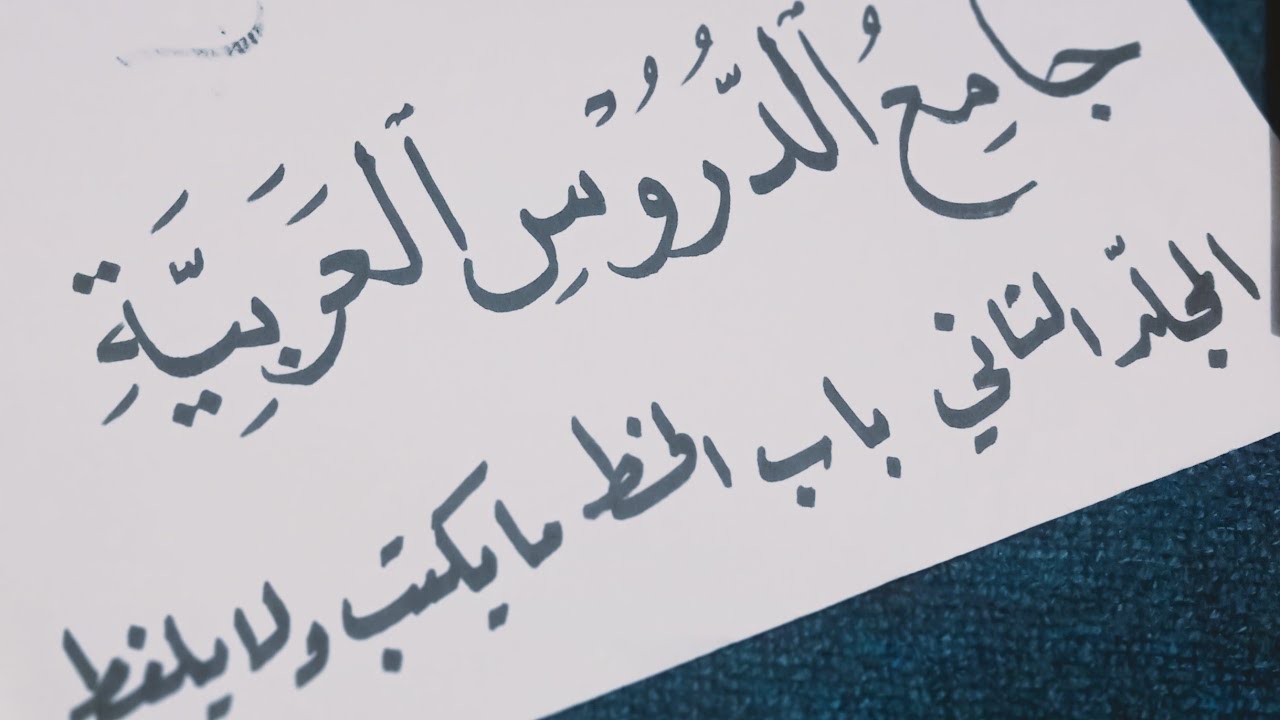 جَامِعُ ٱلدُّرُوْسِ ٱلْعَرَبِيَّةِ
المجلّد الثاني باب الخط ما يكتب ولا يلفظ